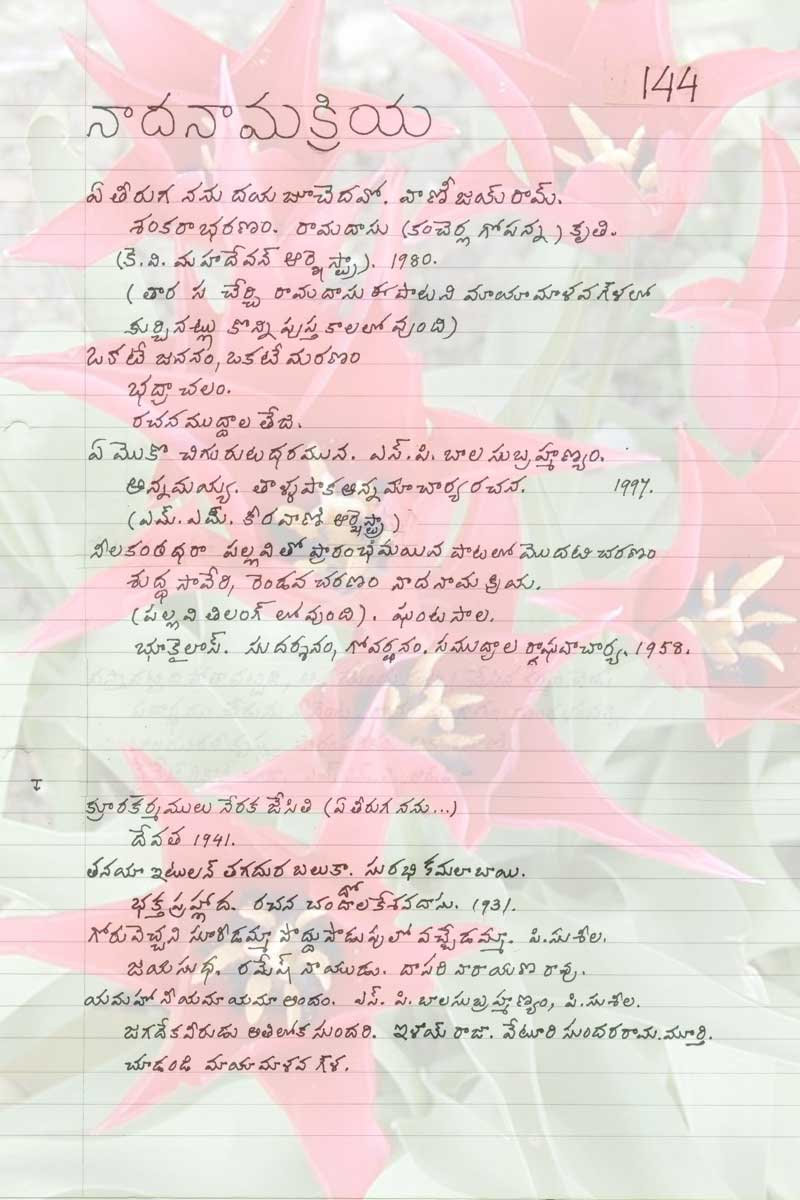 144
నాదనామక్రియ
ఏ తీరుగ నను దయ జూచెదవో. వాణీ జయ్ రామ్.
శంకరాభరణం. రామదాసు (కంచెర్ల గోపన్న) కృతి.
(కె. వి. మహదేవన్ ఆర్కెస్ట్రా). 1980.
(తార స చేర్చి రామదాసు ఈ పాటని మాయామాళవగౌళలో
కుర్చినట్లు కొన్ని పుస్తకాలలో వుంది)
ఒకటే జననం, ఒకటే మరణం
భద్రాచలం.
రచన ముద్దాల తేజ.
ఏమొకో చిగురుటధరమున. ఎస్. పి. బాలసుబ్రహ్మణ్యం.
అన్నమయ్య. తాళ్ళపాక అన్నమాచార్య రచన. 1997.
(ఎమ్. ఎమ్. కీరవాణి ఆర్కెస్ట్రా)
నీలకంఠధరా పల్లవితో ప్రారంభమయిన పాటలో మొదటి చరణం
శుద్ధ సావేరి, రెండవ చరణం నాదనామక్రియ.
(పల్లవి తిలంగ్ లో వుంది). ఘంటసాల.
భూకైలాస్. సుదర్శనం, గోవర్ధనం. సముద్రాల రాఘవాచార్య. 1958.
క్రూరకర్మములు నేరక జేసితి (ఏ తీరుగ నను...)
దేవత 1941.
తనయా ఇటులన్ తగదుర బలుకా. సురభి కమలాబాయి.
భక్త ప్రహ్లాద. రచన చందాల కేశవదాసు. 1931.
గోరువెచ్చని సూరీడమ్మా పొద్దుపొడుపులో వచ్చేడమ్మా. పి. సుశీల.
జయసుధ. రమేష్ నాయుడు. దాసరి నారాయణ రావు.
యమహా నీయమా యమా అందం. ఎస్. పి. బాలసుబ్రహ్మణ్యం, పి. సుశీల.
జగదేకవీరుడు అతిలోక సుందరి. ఇళయ్ రాజా. వేటూరి సుందరరామమూర్తి.
చూడండి మాయామాళవగౌళ.